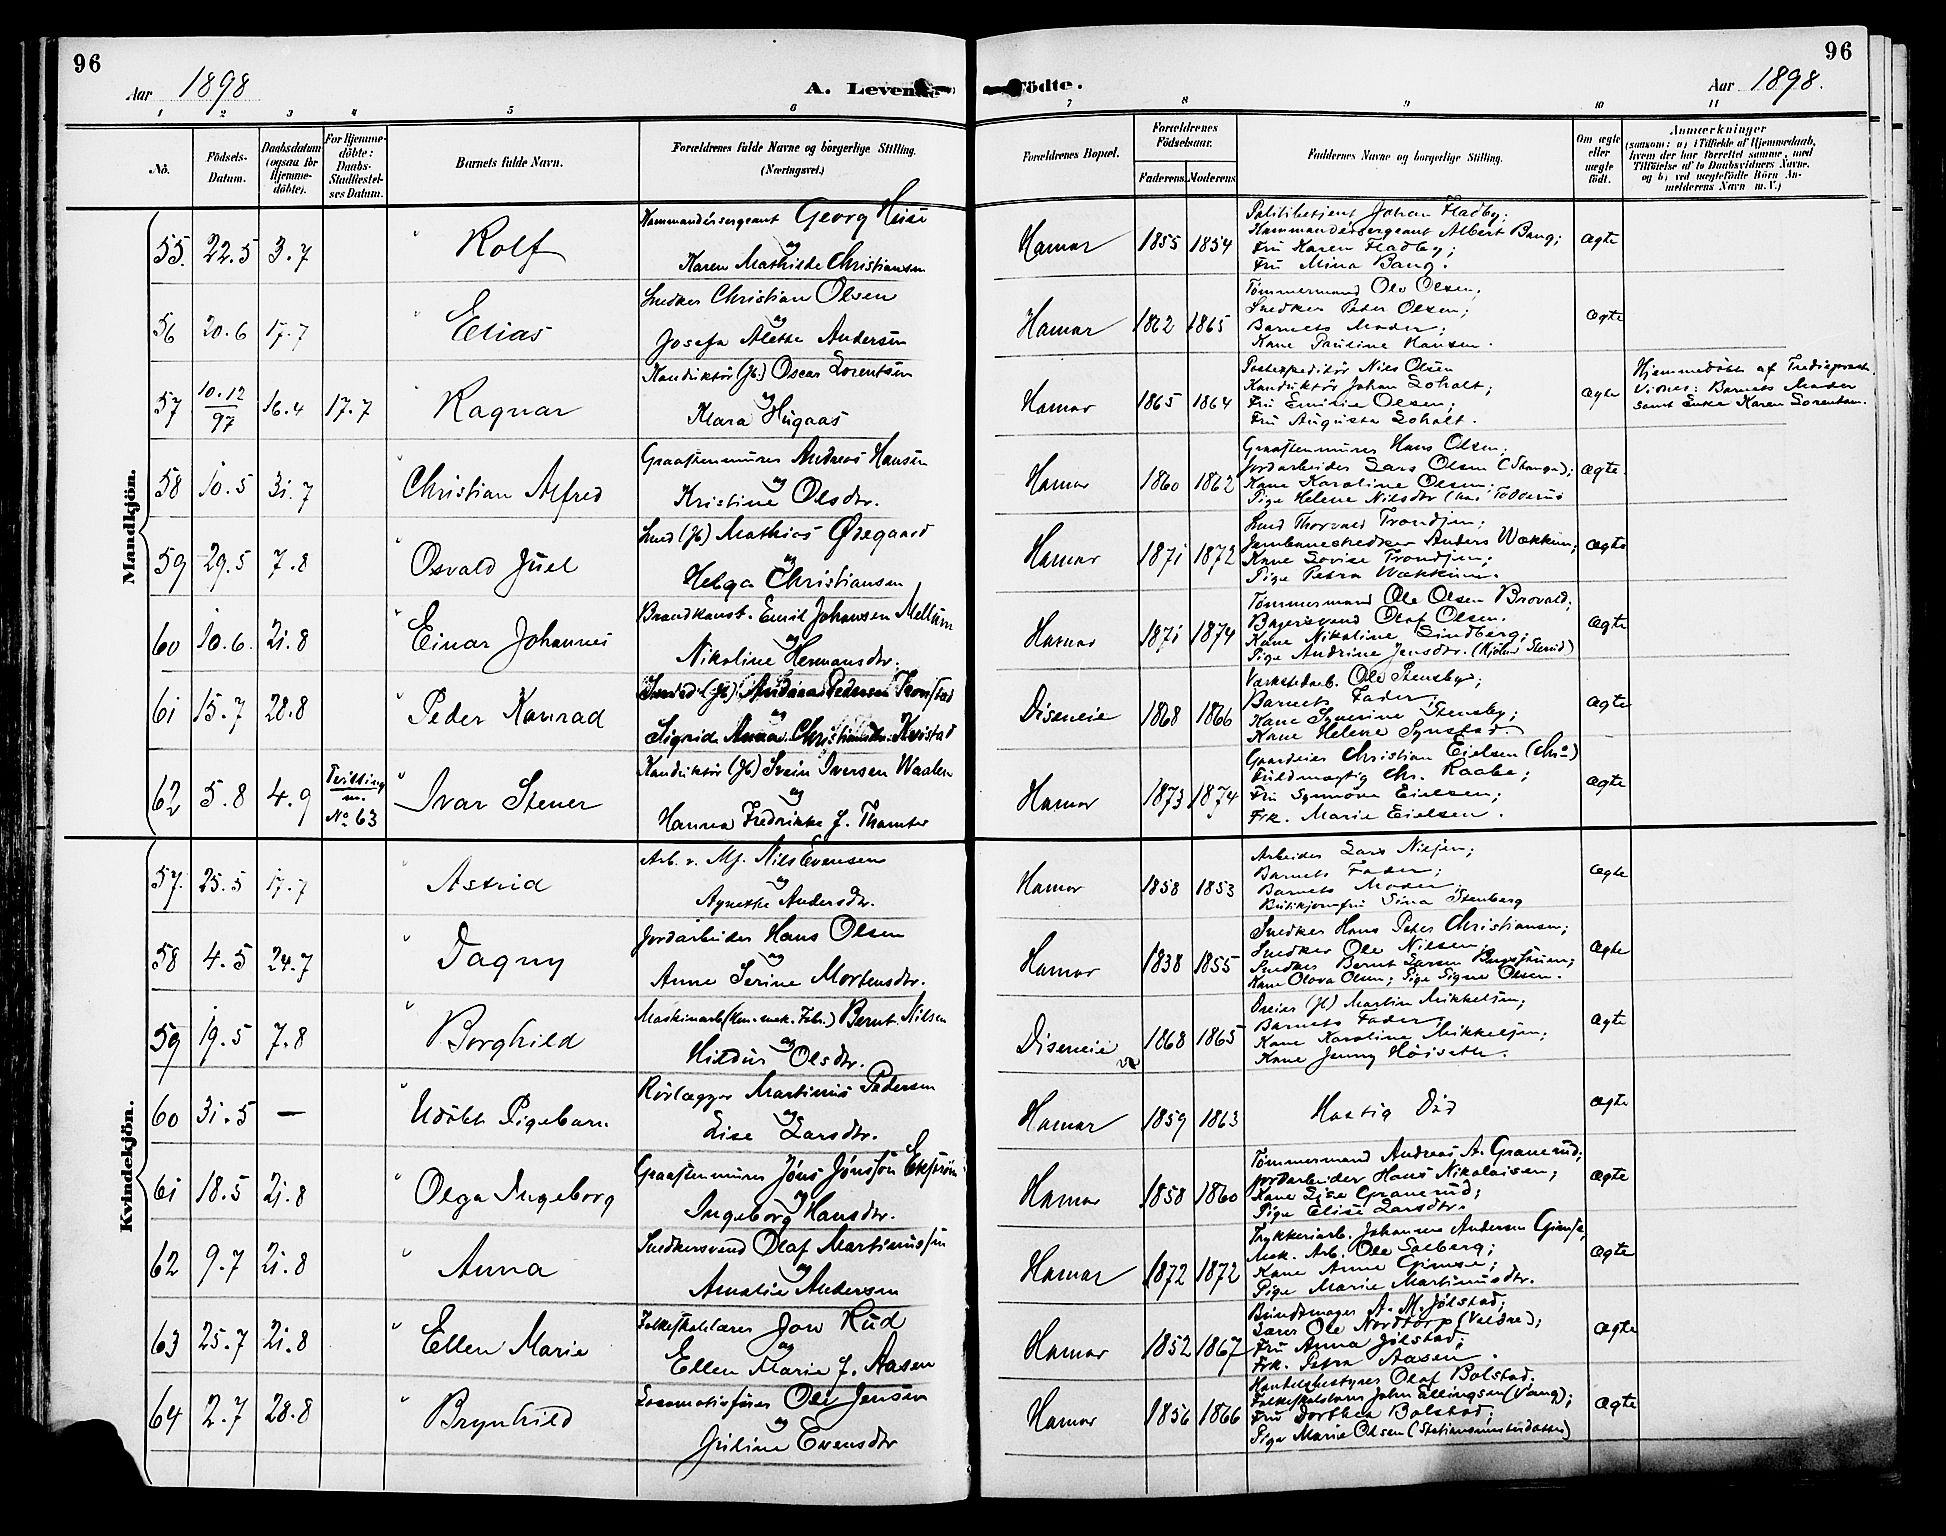 96
96
Aar 1898
A. Levende
Födte.
Aar 1898.
1 2 3 4 5 6 7 8 9 10 11
No.
Födsels-Datum.
Daabsdatum (ogsaa for Hjemme-döbte).
For Hjemme-döbte: Daabs-Stadfæstel-ses Datum.
Barnets fulde Navn.
Forældrenes fulde Navne og borgerlige Stilling. (Næringsvei.)
Forældrenes Bopæl.
Forældrenes Födselsaar.
Faderens. Moderens.
Faddernes Navne og borgerlige Stilling.
Om ægte eller uægte født.
Anmærkninger
(saasom: a) i Tilfælde af Hjemmedaab, hvem der har forrettet samme, med Tilföielse af to Daabsvidners Navne, og b) ved uægtefödte Börn Anmelderens Navn m. V.)
Mandkjön.
55. 22.5 3.7 Rolf
Kommandérsergeant Georg Heise
og
Karen Mathilde Christiansen
Hamar 1855 1854
Politibetjent Johan Fladby;
Kommandérsergeant Albert Bang;
Fru Karen Fladby;
Fru Mina Bang.
Ægte
56 20.6 17.7 Elias
Snedker Christian Olsen
og
Josefa Alette Andersen
Hamar 1862 1865
Tömmermand Ole Olsen;
Snedker Peter Olsen;
Barnets Moder;
Kone Pauline Hansen.
Ægte
57 10.12/97 16.4 17.7 Ragnar
Konduktör (Jb.) Oscar Lorentsen
og
Klara Hugaas
Hamar 1865 1864
Postexpeditör Nils Olsen
Konduktör Johan Soholt;
Fru Emilie Olsen;
Fru Augusta Soholt.
Ægte
Hjemmedöbt af
Vidner: Barnets Moder
samt Enke Karen Lorentsen.
58 10.5 31.7 Christian Alfred
Graastensmurer Andreas Hansen
og
Kristine Olsdtr.
Hamar 1860 1862
Graastensmurer Hans Olsen;
Jordarbeider Lars Olsen (Stange);
Kone Karoline Olsen;
Pige Helene Nilsdtr
Ægte.
59 29.5 7.8 Osvald Juel
Smed (Jb) Mathias Ødegaard
og
Helga Christiansen
Hamar 1871 1872
Smed Thorvald Trondsen;
Jernbanesnedker Anders Wækkum;
Kone Lovise Trondsen;
Pige Petra Wækkum.
Ægte
60 10.6. 21.8 Einar Johannes
Brandkonst. Emil Johansen Mellum
og
Nikoline Hermansdtr.
Hamar 1871 1874
Tömmermand Ole Olsen Brovald;
Bagersvend Olaf Olsen.
Kone Nikoline Lindberg;
Pige Andrine Jensdtr.
Ægte
61 15.7 28.8 Peder Konrad
Smed (Jb) Andreas Pedersen Tronstad
og
Sigrid Anna Christiansdtr. Kvistad
Diseneie 1868 1866
Værkstedarb. Ole Stensby;
Barnets Fader,
Kone Syverine Stensby;
Kone Helene Synstad.
Ægte
62 5.8 4.9 Tvilling m. No 63 Ivar Stener
Konduktör (Jb) Svein Iversen Waalen
og
Hanna Fredrikke f. Thomter
Hamar 1873 1874
Gaardeier Christian Eielsen
Fuldmægtig Chr. Raabe;
Fru Synnöve Eielsen;
Frk. Marie Eielsen.
Ægte
Kvindekjön.
57. 25.5 17.7 Astrid
Arb. v. Mj. Nils Evensen
og
Agnethe Andersdtr.
Hamar 1858 1853
Arbeider Lars Nilsen;
Barnets Fader;
Barnets Moder,
Butikjomfru Sina Stenberg
Ægte
58 4.5 24.7 Dagny
Jordarbeider Hans Olsen
og
Anne Serine Mortensdtr.
Hamar 1838 1855
Snedker Hans Peter Christiansen;
Snedker Ole Nilsen;
Snedker Bernt Larsen
Kone Olova Olsen; Pige Signe Olsen.
Ægte
59 19.5 7.8 Borghild
Maskinarb Bernt Nilsen
og
Hildur Olsdtr.
Diseneie 1868 1865
Dreier (Jb) Martin Mikkelsen;
Barnets Fader,
Kone Karoline Mikkelsen;
Kone Jenny Höiseth.
Ægte
60 31.5 — Udöbt Pigebarn.
Rörlægger Martinius Pedersen
og
Lise Larsdtr.
Hamar 1859 1863
Hastig Död
Ægte
61 18.5 21.8 Olga Ingeborg
Graastensmurer Jöns Jönsson Ekström
og
Ingeborg Hansdtr.
Hamar 1858 1860
Tömmermand Andreas A. Granerud;
Jordarbeider Hans Nikolaisen;
Kone Lise Granerud;
Pige Elise Larsdtr.
Ægte
62 9.7 21.8 Anna
Snedkersvend Olaf Martinussen
og
Amalie Andersen
Hamar 1872 1872
Trykkeriarb. Johannes Andersen Gimse,
Mek. Arb. Ole Solberg;
Kone Anne Gimse;
Pige Marie Martinusdtr.
Ægte
63 25.7 21.8 Ellen Marie
Folkeskolelærer Jon Rud
og
Ellen Marie f. Aasen
Hamar 1852 1867
Bundtmager A. M. Jölstad;
Lærer Ole Nordtorp (Veldre);
Fru Anna Jölstad;
Frk. Petra Aasen.
Ægte
64 2.7 28.8 Brynhild
Locomotivförer Ole Jensen
og
Juline Evensdtr
Hamar 1856 1866
Handelsbestyrer Olaf Bolstad.
Folkeskolelærer John Ellingsen (Vang);
Fru Dorthea Bolstad;
Pige Marie Olsen (Stationsmesterdatter)
Ægte